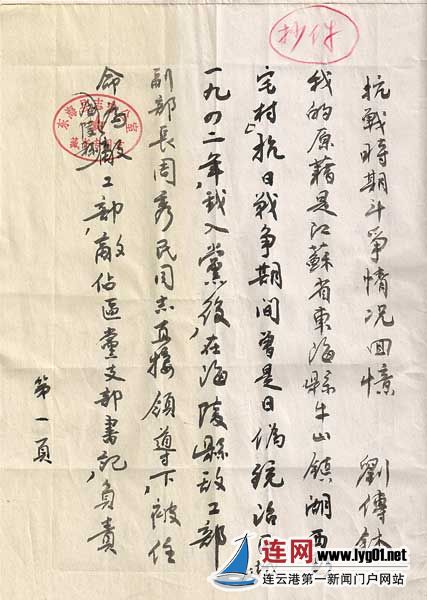 抄件
抗戰時期斗爭情况回憶 劉傳
我的原籍是江蘇省東海縣牛山鎮湖西
宅村,抗日戰爭期間曾是日偽統治
一九四二年,我入黨後,在海陵縣敌工部
副部長周秀民同志直接領導下,被任
命為海陵縣敌工部,敵佔區黨支部書記,負責
第一頁
连网 www.lyg01.net
连云港第一新闻门户网站